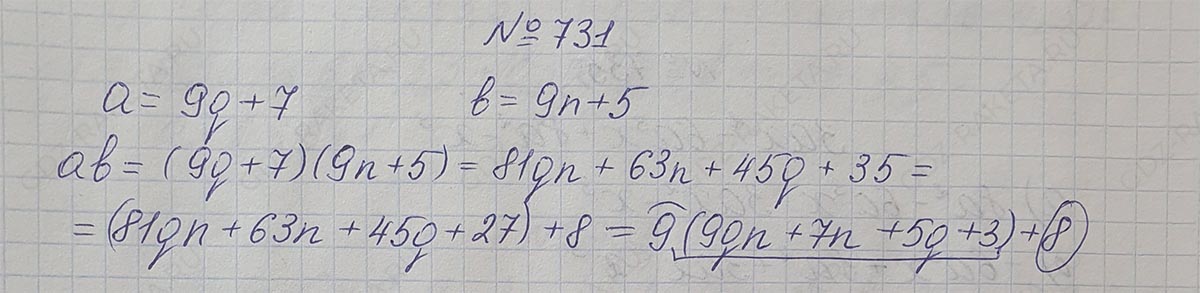 № 731
a = 9q + 7 b = 9n + 5
ab = (9q + 7)(9n + 5) = 81qn + 63n + 45q + 35 =
= (81qn + 63n + 45q + 27) + 8 = 9(9qn + 7n + 5q + 3) + 8